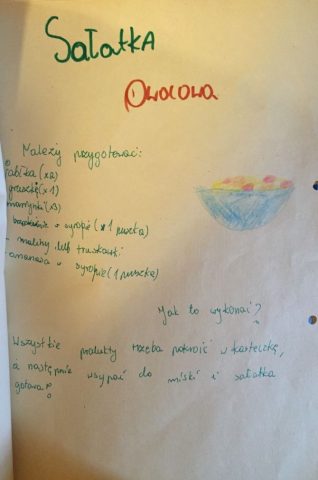 Sałatka
Owocowa
Należy przygotować:
jabłka (x2)
gruszkę (x1)
mandarynki (x3)
brzoskwinie w syropie (x1 puszka)
- maliny lub truskawki
ananasa w syropie (1 puszka)
Jak to wykonać?
Wszystkie produkty trzeba pokroić w kosteczkę,
a następnie wsypać do miski i sałatka
gotowa!